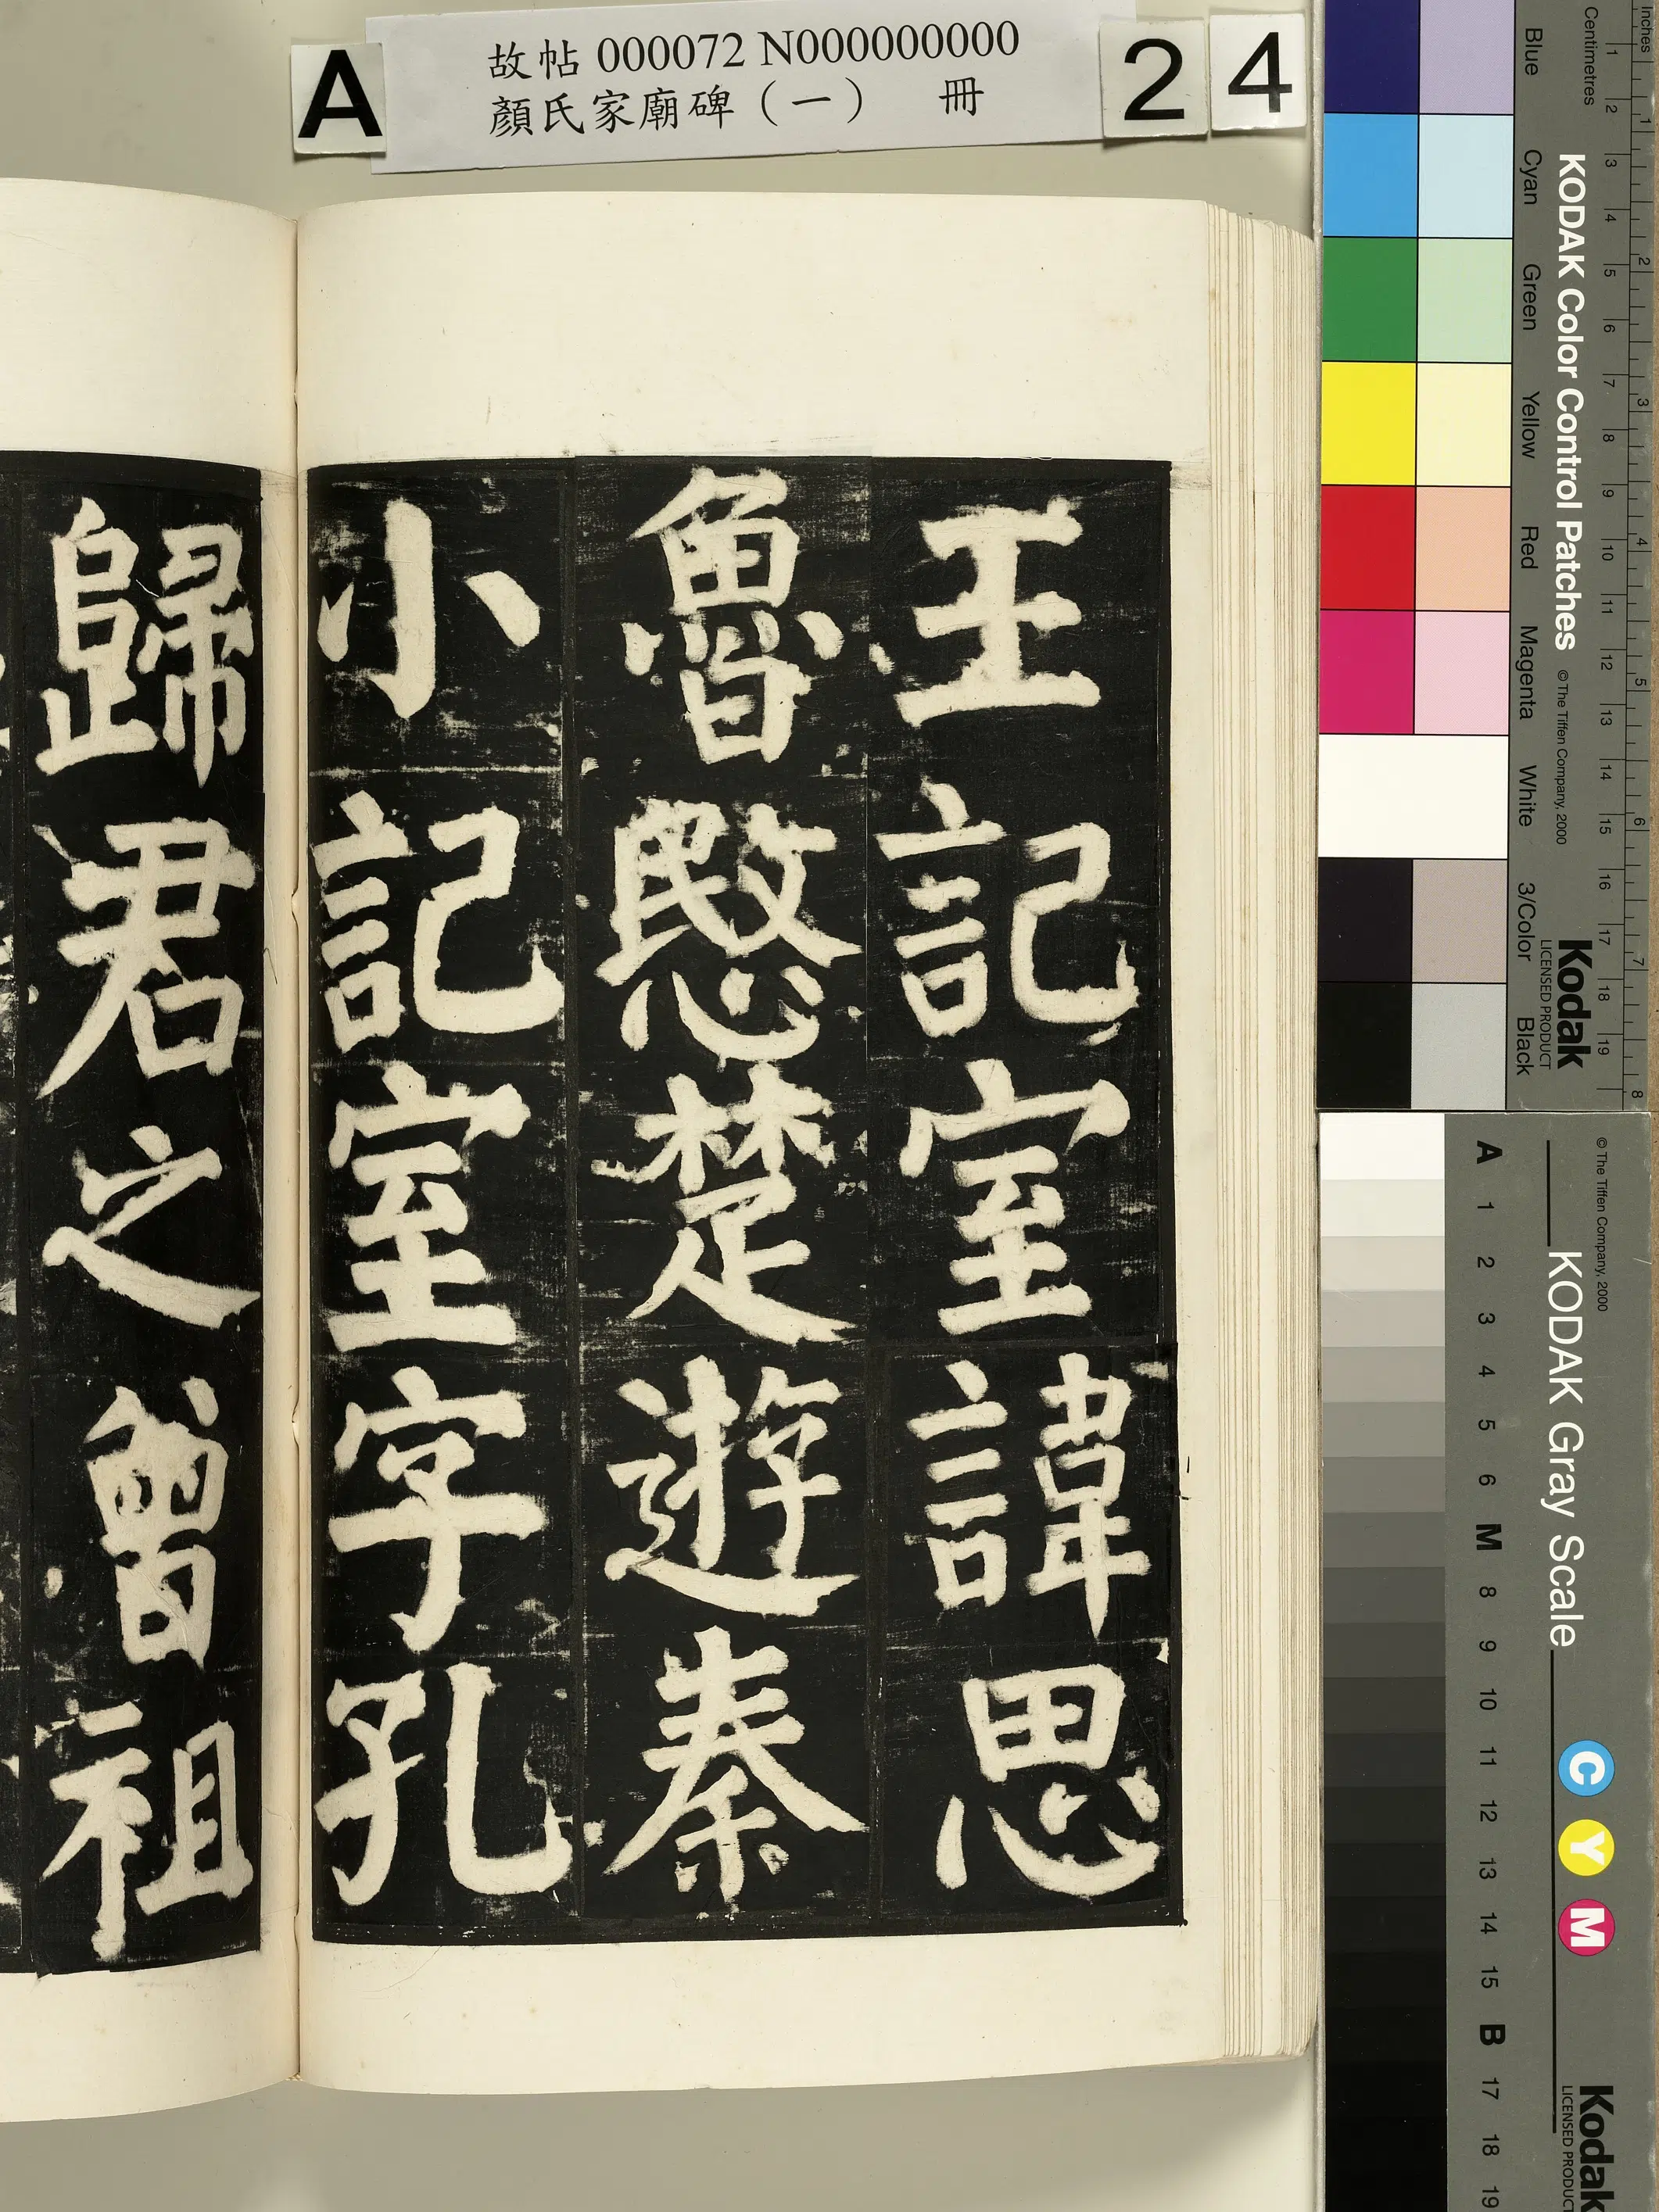 故帖 000072 N000000000
顏氏家廟碑（一） 冊
A
2 4
王記室諱思
魯愍楚遊秦
小記室字孔
歸君之曾祖
Inches
Centimetres
1 2 3 4 5 6 7 8
1 2 3 4 5 6 7 8 9 10 11 12 13 14 15 16 17 18 19
KODAK Color Control Patches
© The Tiffen Company, 2000
Kodak
LICENSED PRODUCT
Blue Cyan Green Yellow Red Magenta White 3/Color Black
© The Tiffen Company, 2000
KODAK Gray Scale
C Y M
Kodak
LICENSED PRODUCT
A 1 2 3 4 5 6 M 8 9 10 11 12 13 14 15 B 17 18 19